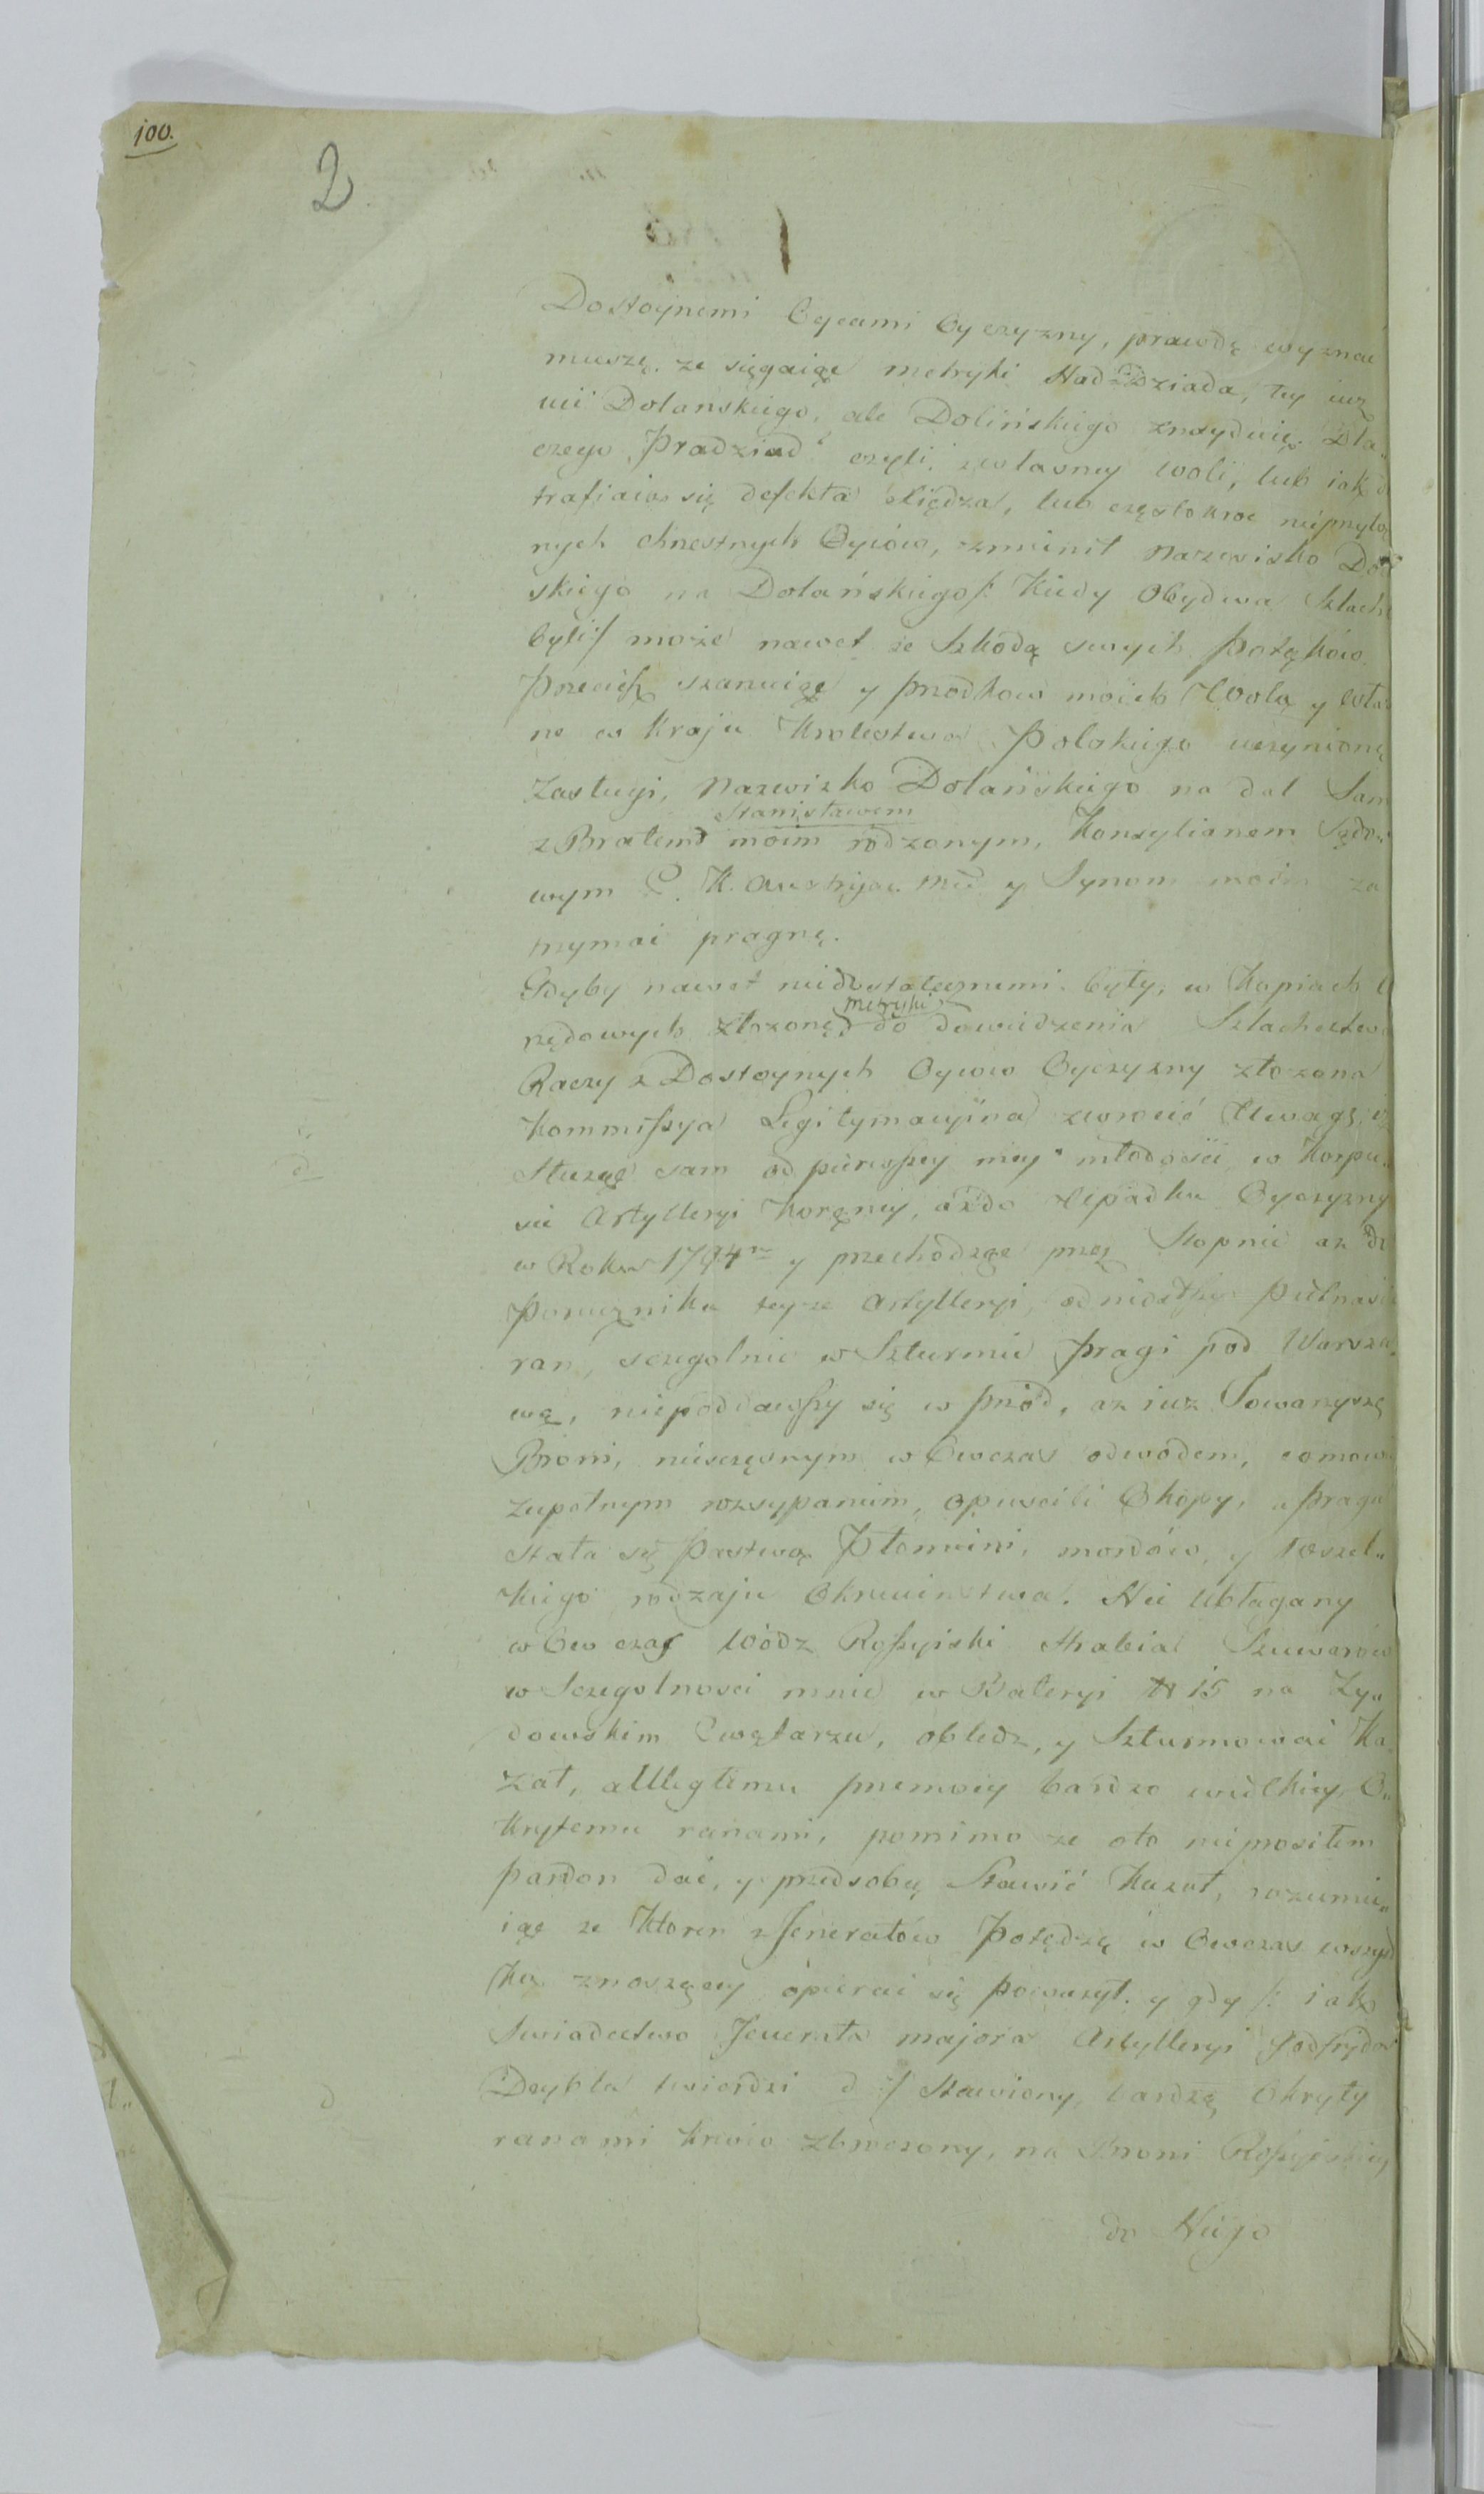 100.
2.
Dostoynemi Oycami Oyczyzny, prawdę wyznac
muszę, ze sięgaiąc metryki Naddziada, tey iuz
nie Dolanskiego, ale Dolińskiego znayduię. Dla„
czego Pradziad czyli z własney woli, lub iak
trafiaią się defekta Xiędza, lub częstokroc nieprzyto
nych chrzestnych Oyców, zmienił Nazwisko Doliń
skiego na Dolańskiego /: Kiedy Obydwa Szlach
byli :/ może nawet ze Szkodą swych Potąków.
Przecież szanuiąc y przodkow moich Wolą y wła
ne w Kraju Krolestwa Polskiego uczynione
Zasługi, Nazwisko Dolańskiego na dal Sam
z Bratem Stanisławem moim rodzonym, Konsyliarzem Sądo„
wym C. K. Austryac. y Synom moim za
trzymac pragnę.
Gdyby nawet niedostatecznemi były, w Kopiach U
rzędowych złozone metryki do dowiedzenia Szlachectwa
Raczy z Dostoynych Oycow Oyczyzny złozona
Kommissya Legitymacyina zwrocić Uwagę, iz
Służąc sam od pierwszey mey młodosci w Korpu„
sie Artylleryi Koronney, az do Upadku Oyczyzny
w Roku 1794 y przechodząc przez Stopnie az do
Porucznika teyze Artylleryi, odniosłem
ran, szczegolnie w Szturmie Pragi pod Warsza„
wą, niepoddawszy się w przód, az iuz Towarzysze
Broni, nieszczęsnym w Owczas odwodem,
zupełnym rozsypaniem, opuscili Okopy, a Praga
stała się Pastwą Płomieni, mordów, y Wszel„
kiego rodzaju Okrucienstwa. Nie Ubłagany
w Ow czas Wódz Rossyiski Hrabia Suwarow
w Szczegolnosci mnie w Bateryi N 15 na Zy„
dowskim Cmętarzu, obledz, y Szturmowac Ka„
zał, a Uległemu przemocy bardzo wielkiey, O„
krytemu ranami, pomimo ze oto nieprosiłem
Pardon dać, y przedsobą Stawić Kazał, rozumie„
iąc ze Ktoren z Jenerałów Potędze w Owczas wszyst
ko znoszącey opierac się powazył. y gdy /: iako
Swiadectwo Jenerała majora Artylleryi Godfryda
Deybla twierdzi d :/ Stawiony, bardzo Okryty
ranami krwią zbroczony, na Broni Rossyiskiey
do Niego